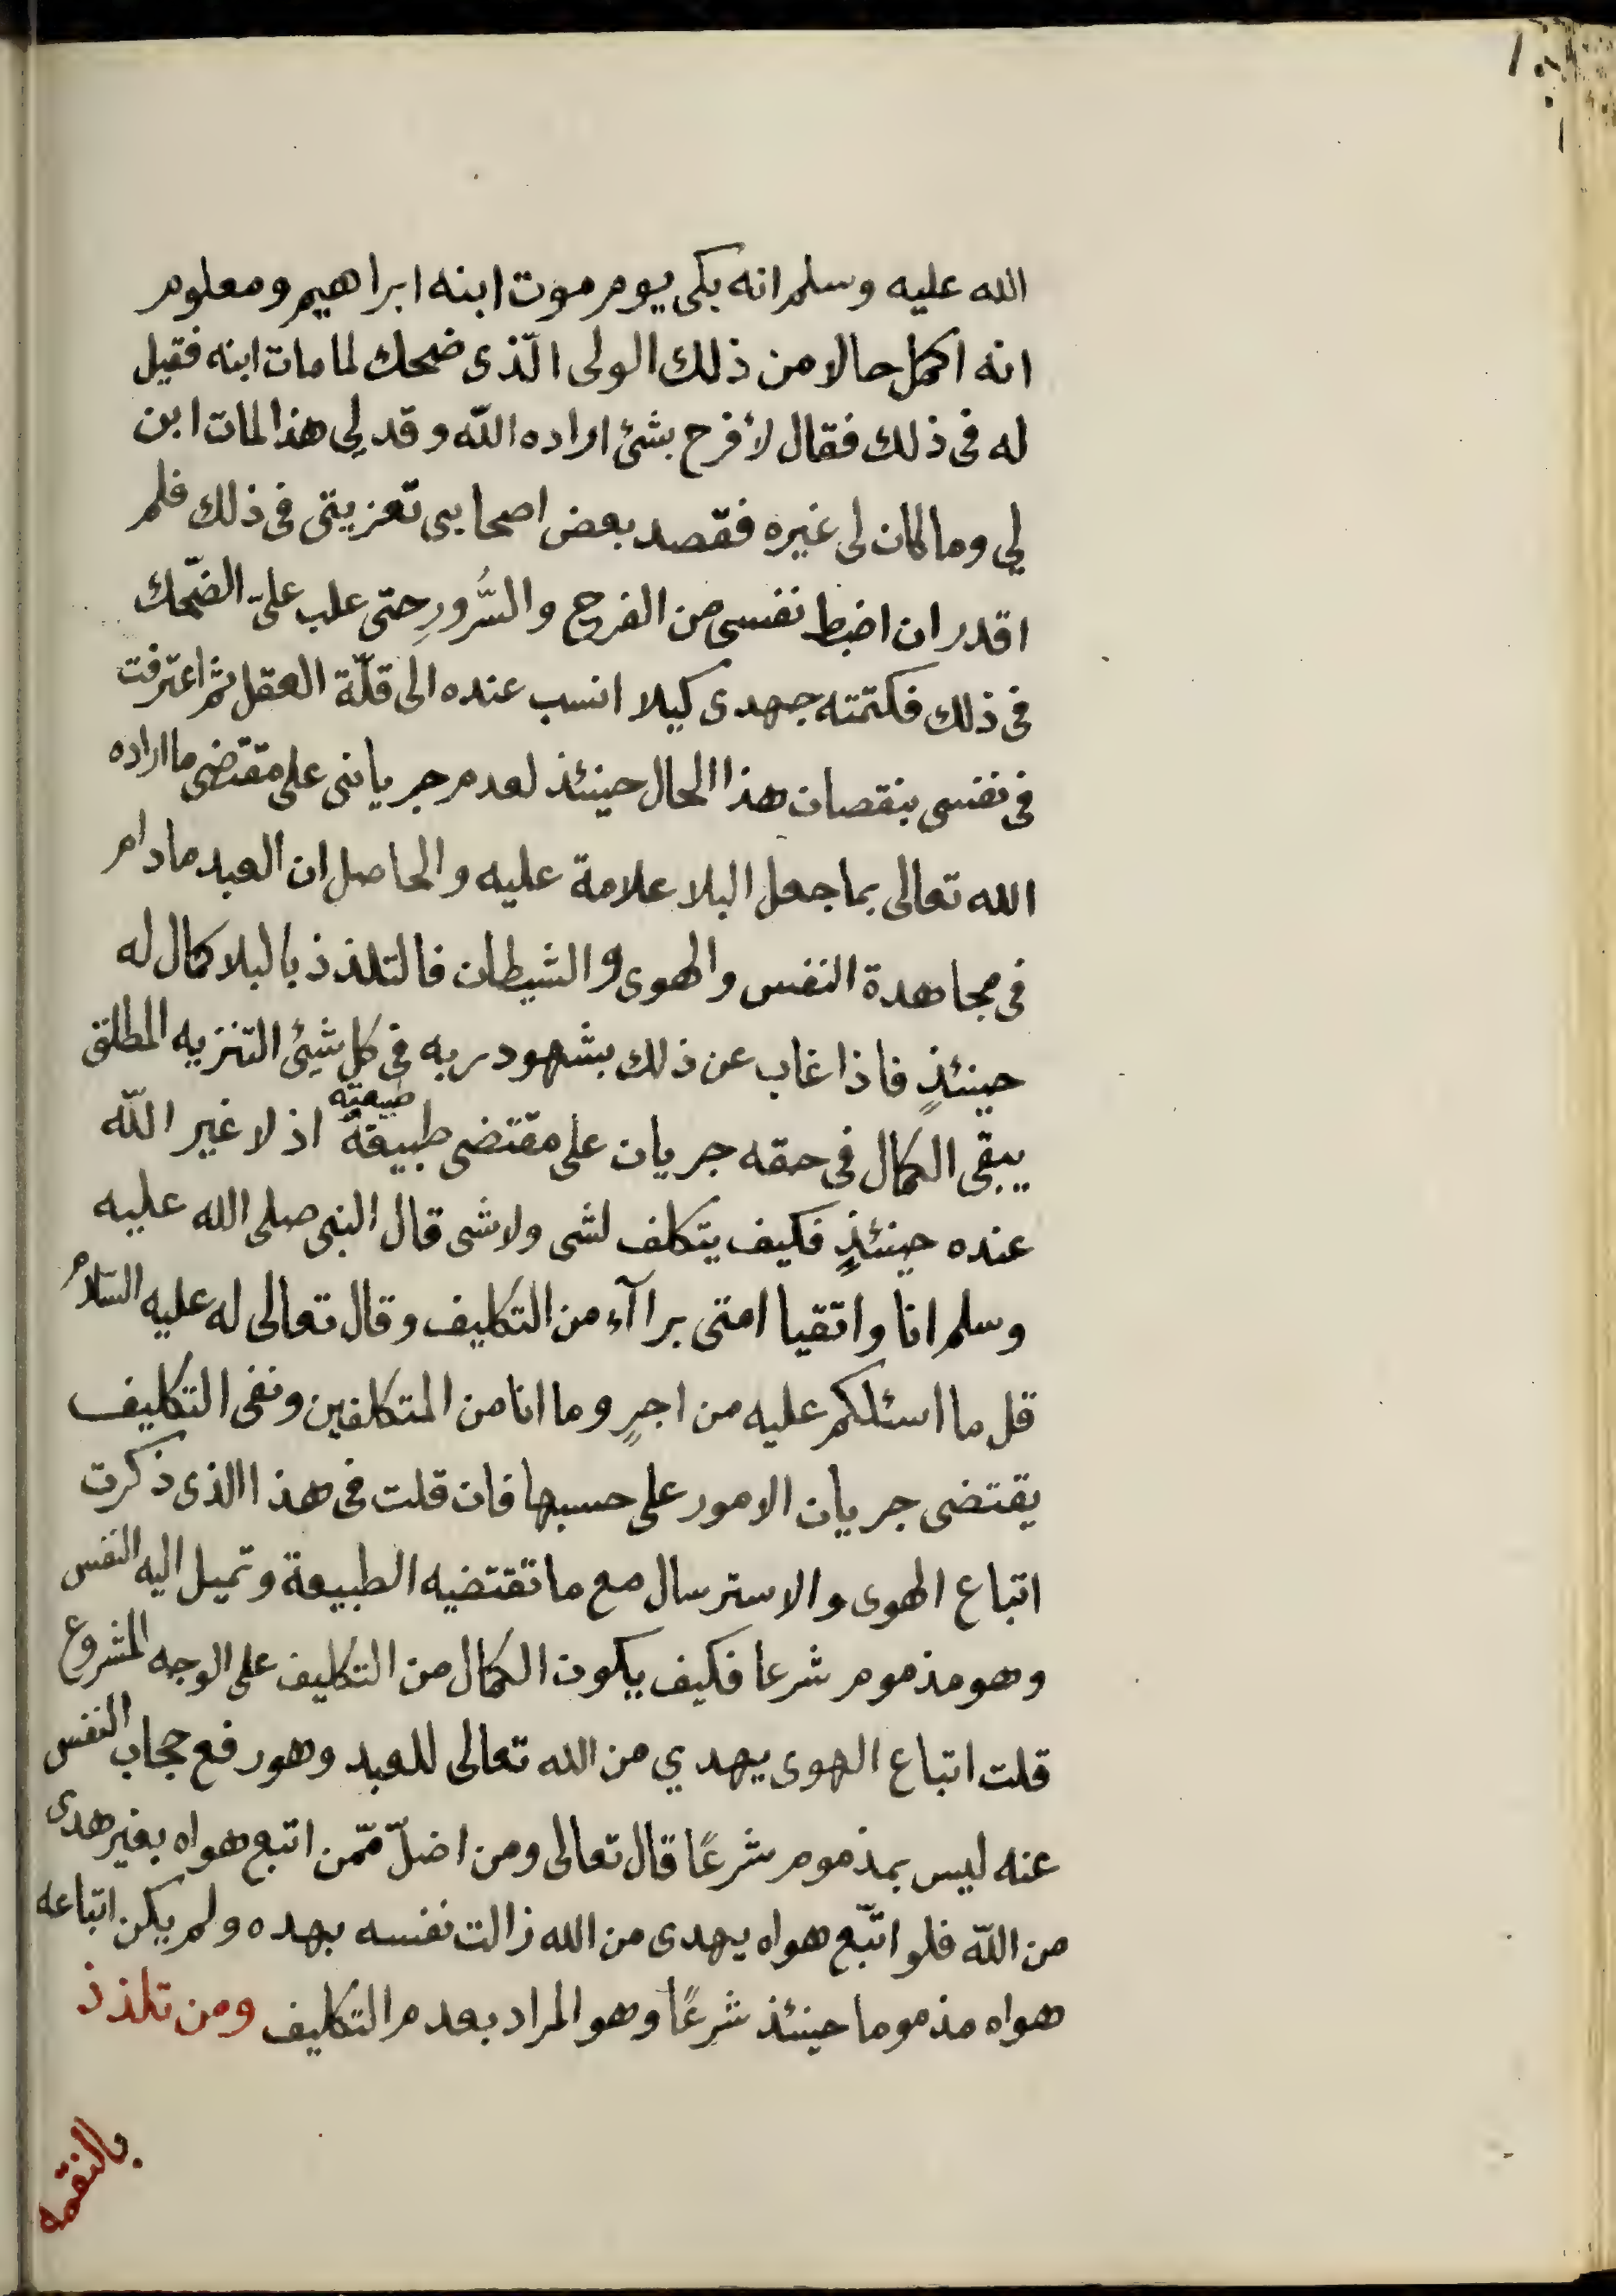 الله عليه وسلم انه بكى يوم موت ابنه ابراهيم ومعلوم
انه اكمل حالا من ذلك الولى الّذى ضحك لما مات ابنه فقيل
له فى ذلك فقال لأفرح بشئ اراده الله وقد لى هذا لمات ابن
لي وما كان لى غيره فقصد بعض اصحابى تعزيتى فى ذلك فلم
اقدر ان اضبط نفسى من الفرح والسُّرورِ حتى علب علىّ الضّحك
فى ذلك فكتمته جهدى كيلا انسب عنده الى قلّة العقل ثم اعترفت
فى نفسى بنقصان هذا الحال حينئذ لعدم جريانى على مقتضى ما اراده
الله تعالى بما جعل البلا علامة عليه والحاصل ان العبد مادام
فى مجاهدة النفس والهوى والشيطان فالتلذذ بالبلا كمال له
حينئذٍ فاذا غاب عن ذلك بشهود ربه فى كل شيئ التنزيه المطلق
يبقى الكمال فى حقه جريان على مقتضى طبيعة طبيعته اذ لا غير الله
عنده حينئذٍ فكيف يتكلف لشى ولاشى قال النبى صلى الله عليه
وسلم انا واتقيا امتى براآء من التكليف وقال تعالى له عليه السّلام
قل ما اسئلكم عليه من اجرٍ وما انا من المتكلفين ونفى التكليف
يقتضى جريان الامور على حسبها فان قلت فى هذا الذى ذكرت
اتباع الهوى والاسترسال مع ما تقتضيه الطبيعة وتميل اليه النفس
وهو مذموم شرعا فكيف يكون الكمال من التكليف على الوجه المشروع
قلت اتباع الهوى يهدي من الله تعالى للعبد وهو رفع حجاب النفس
عنه ليس بمذموم شرعًا قال تعالى ومن اضلّ ممّن اتبع هواه بغير هدى
من الله فلو اتّبع هواه يهدى من الله زالت نفسه بهده ولم يكن اتباعه
هواه مذموما حينئذ شرعًا وهو المراد بعدم التكليف ومن تلذذ
بالنقمه